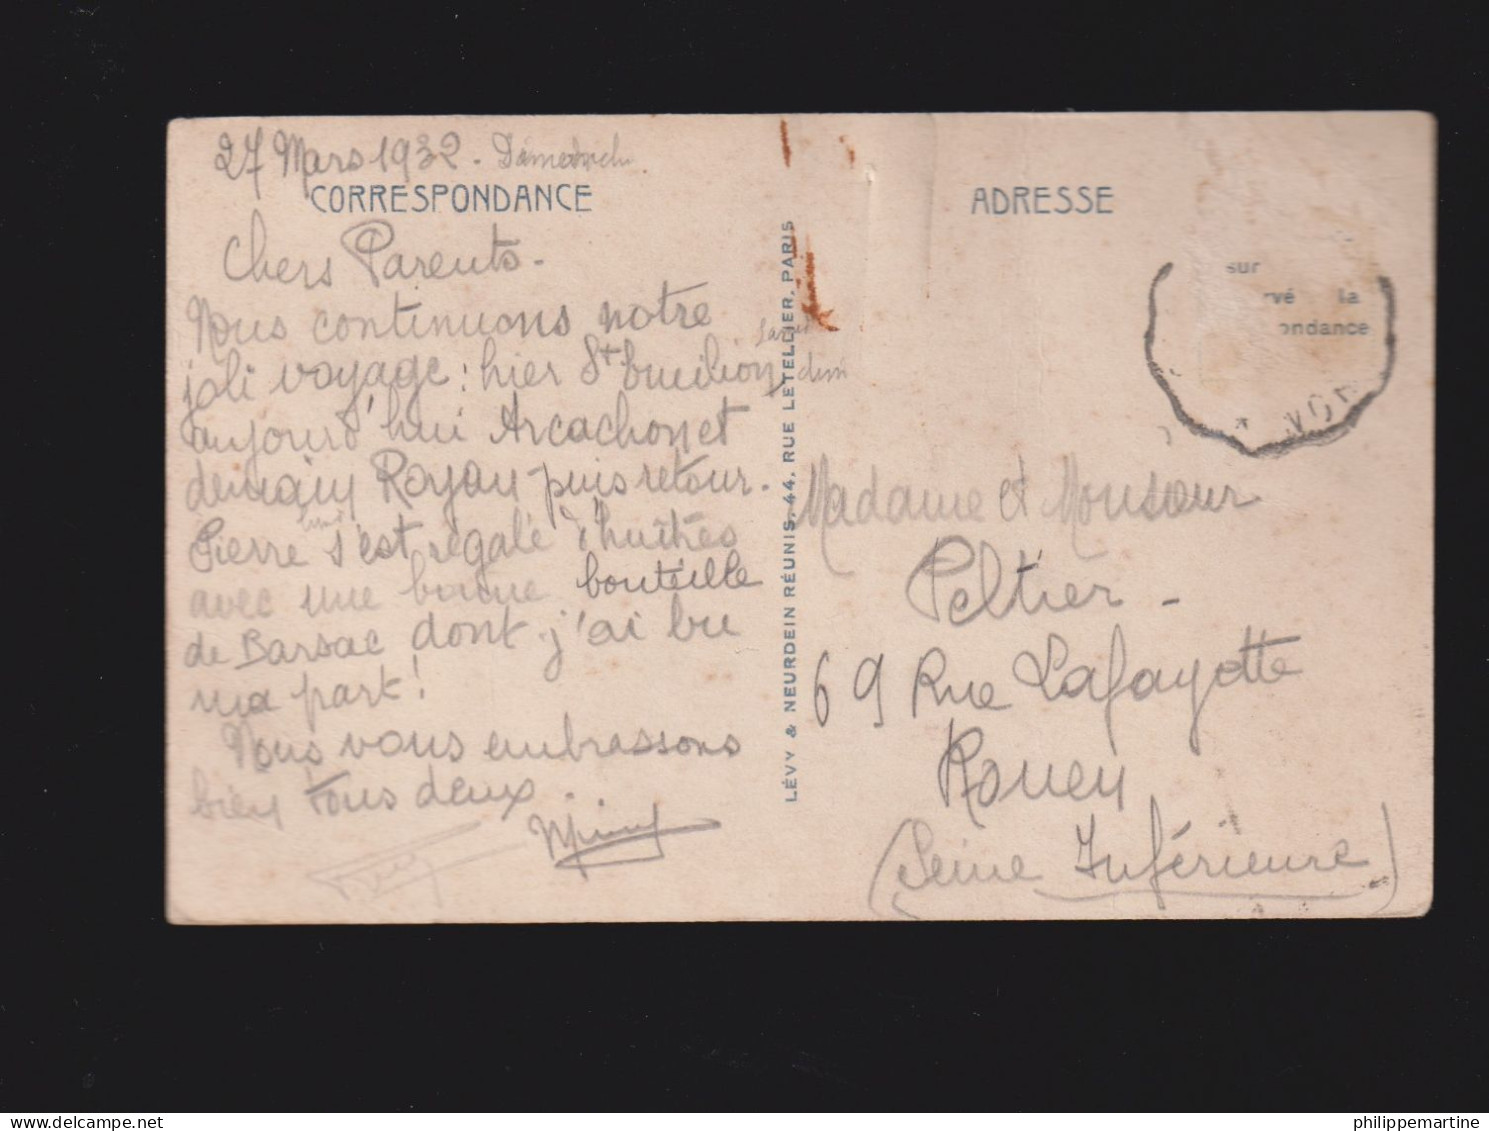 27 Mars 1932.
CORRESPONDANCE
Chers Parents.
Nous continuons notre
joli voyage : hier St Emilion,
aujourd'hui Arcachon et
demain Royan puis retour.
Pierre s'est régalé d'huîtres
avec une bonne bouteille
de Barsac dont j'ai bu
ma part !
Nous vous embrassons
bien tous deux.
LÉVY & NEURDEIN RÉUNIS, 44, RUE LETELLIER, PARIS
ADRESSE
sur
rvé la
ondance
Madame et Monsieur
Peltier -
69 Rue Lafayette
Rouen
(Seine Inférieure)
philippemartine